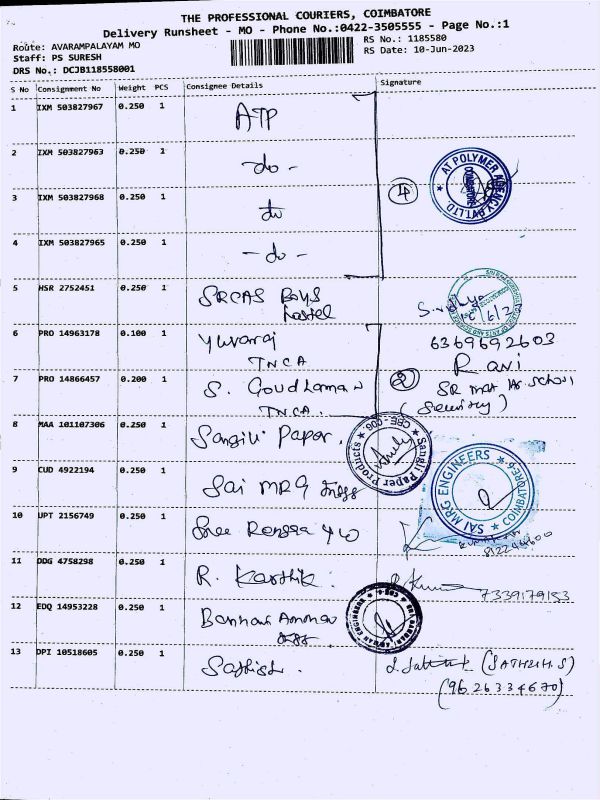 THE PROFESSIONAL COURIERS, COIMBATORE
Delivery Runsheet - MO - Phone No.:0422-3505555 - Page No.:1
Route: AVARAMPALAYAM MO
RS No.: 1185580
Staff: PS SURESH
RS Date: 10-Jun-2023
DRS No.: DCJB118558001
S No Consignment No Weight PCS Consignee Details Signature
1 IXM 503827967 0.250 1 ATP
2 IXM 503827963 0.250 1 -do-
AT POLYMER AGENCY PVT.LTD. COIMBATORE
3 IXM 503827968 0.250 1 do 4
4 IXM 503827965 0.250 1 -do-
5 HSR 2752451 0.250 1 SRCAS Boys
hostel
6 PRO 14963178 0.100 1 Yuvaraj 6369692603
TNCA Ravi
7 PRO 14866457 0.200 1 S. Goudhaman 2 SR school
TNCA. (Security)
8 MAA 101107306 0.250 1 Sangili Paper.
Sangli Paper Products CBE-006
9 CUD 4922194 0.250 1 Sai MRG Engg
SAI MRG ENGINEERS COIMBATORE-6
10 UPT 2156749 0.250 1 Sree Rengaa
11 DDG 4758298 0.250 1 R. Karthik. 7339179153
12 EDQ 14953228 0.250 1 Bannari Amman
Engg
13 DPI 10518605 0.250 1 Sathish. (SATHISH.S)
(9626334670)